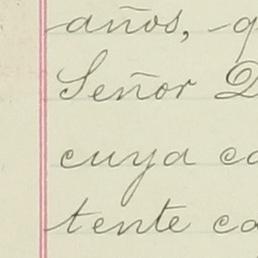 años, - q
Señor D
cuya co
tente co